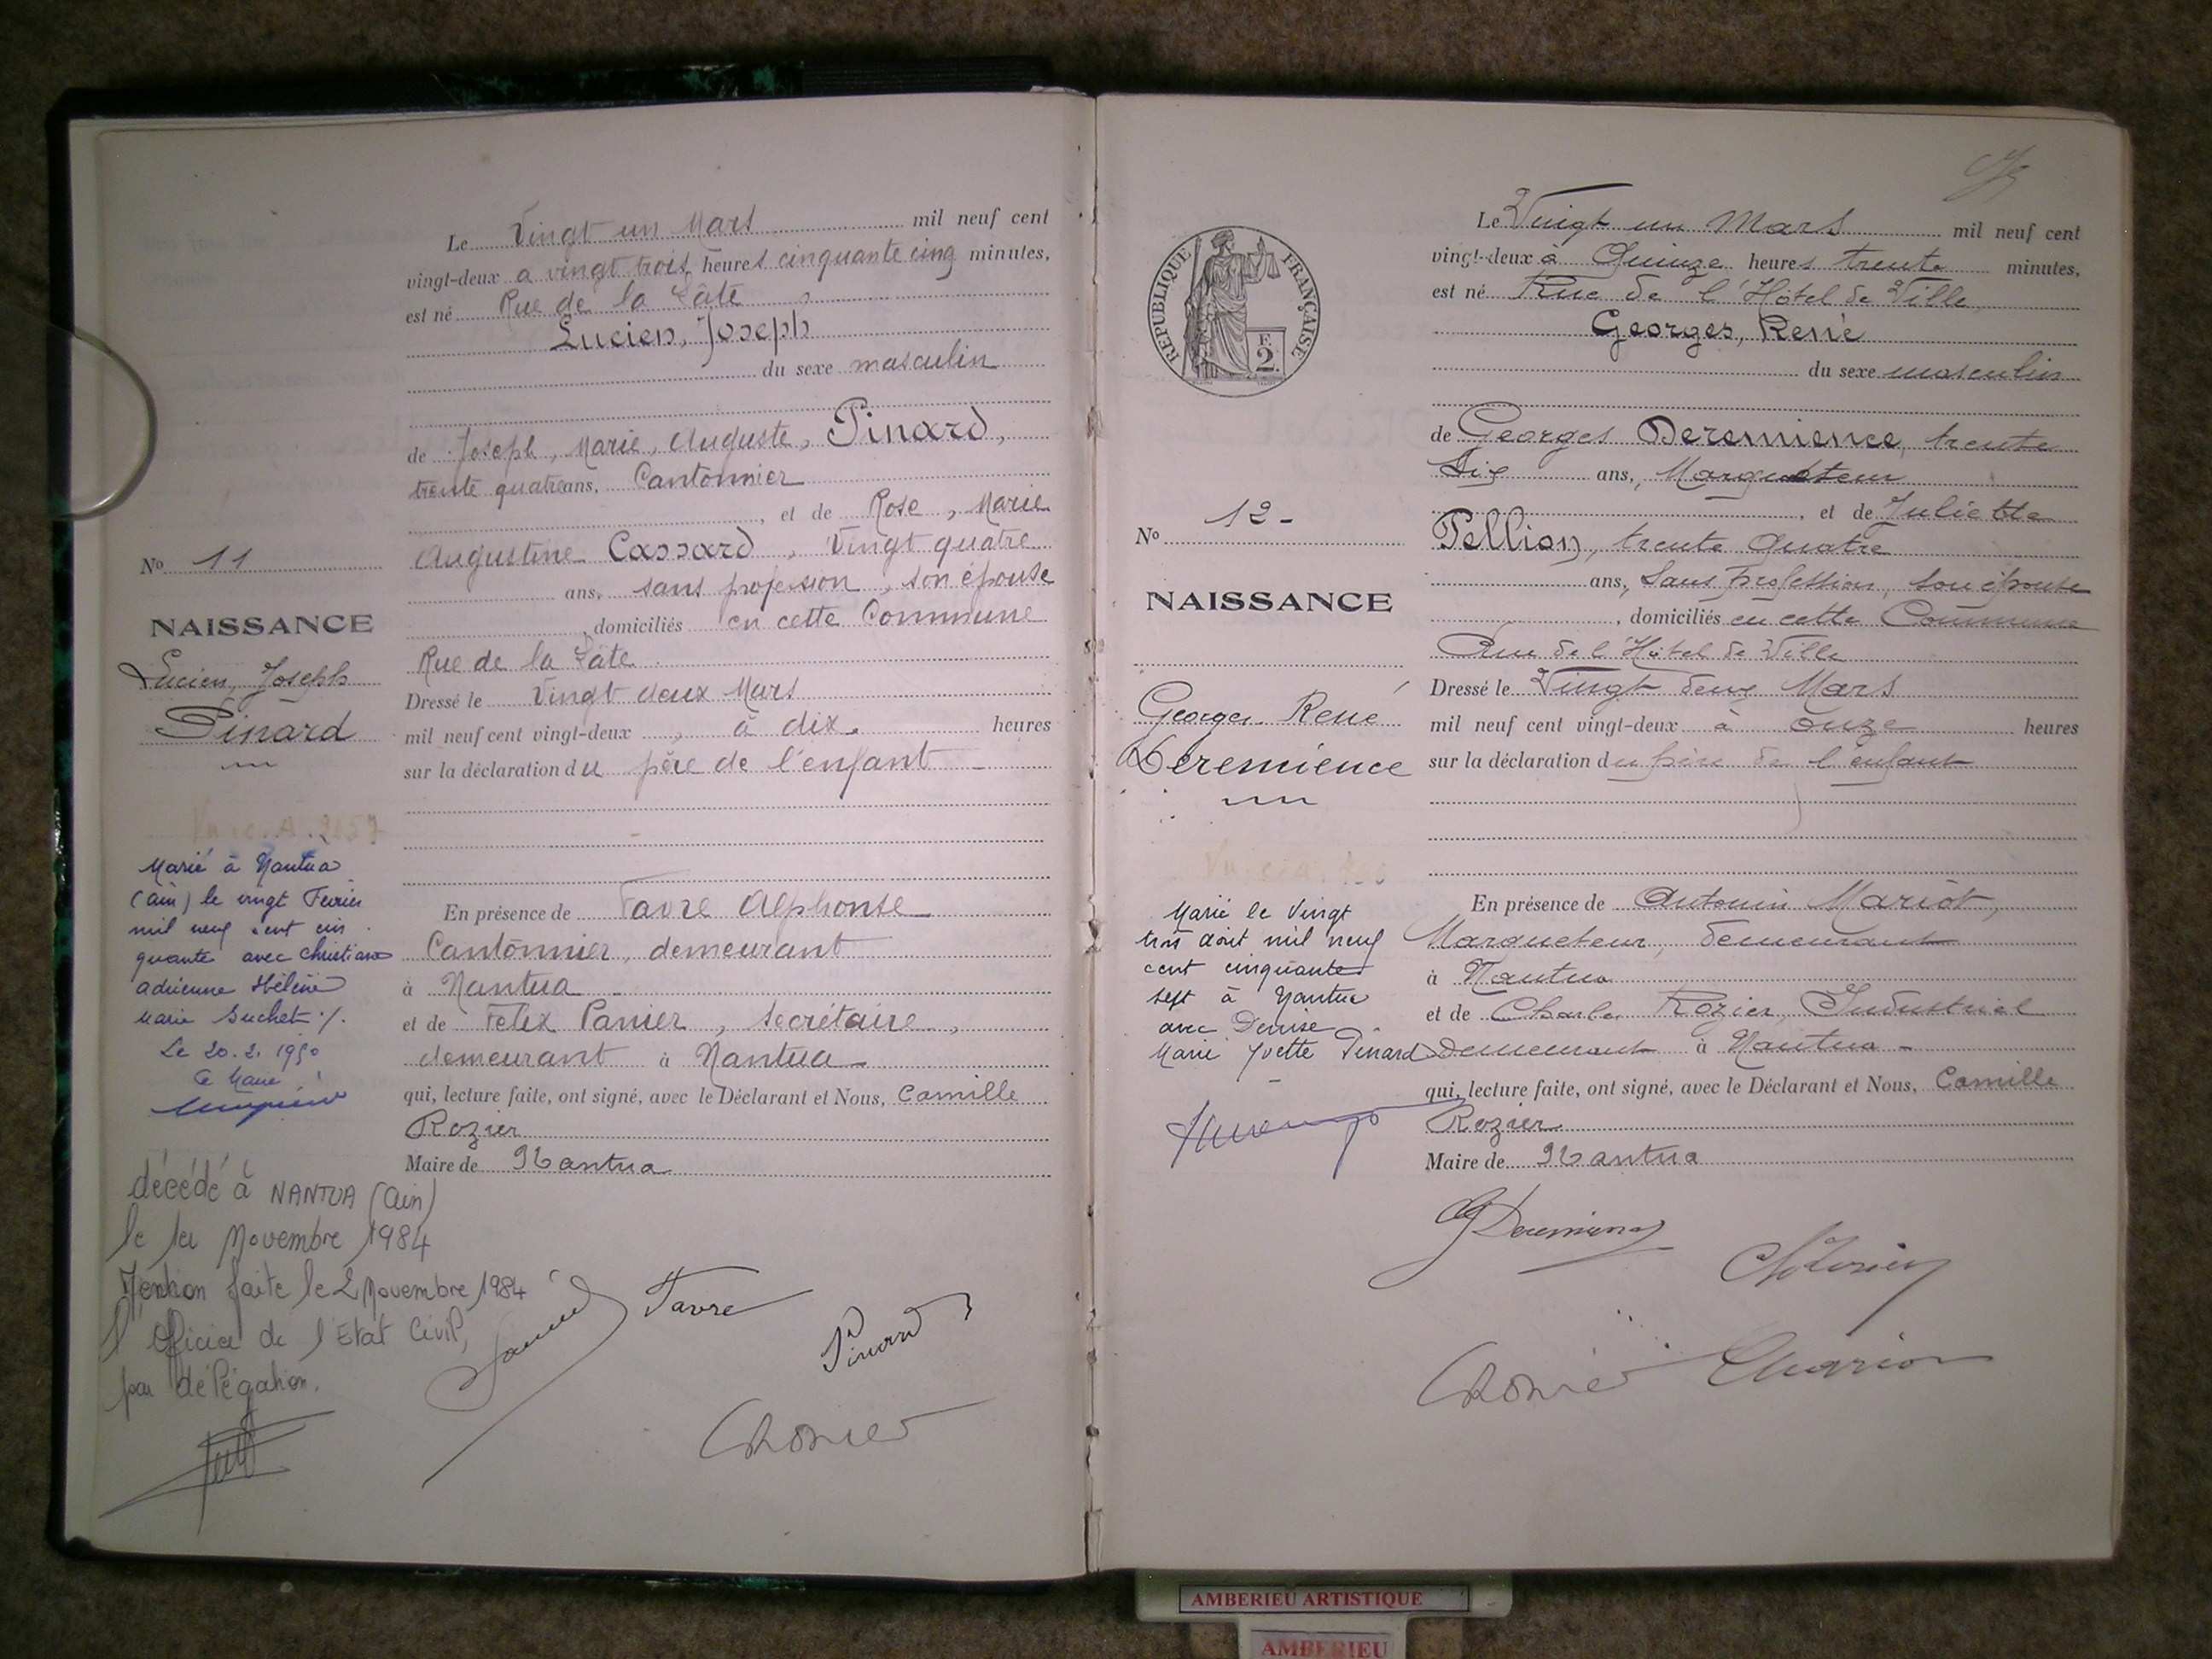 Le Vingt un Mars mil neuf cent
vingt-deux à vingt trois heures cinquante cinq minutes,
est né Rue de la
Lucien, Joseph
du sexe masculin
de Joseph, Marie, Auguste, Pinard,
trente quatre ans, Cantonnier
, et de Rose, Marie
Augustine Cassard, Vingt quatre
ans, sans profession, son épouse
, domiciliés en cette Commune
Rue de la
Dressé le Vingt deux Mars
mil neuf cent vingt-deux, à dix heures
sur la déclaration du père de l'enfant
En présence de Favre Alphonse
Cantonnier, demeurant
à Nantua
et de Félix Panier, secrétaire,
demeurant à Nantua
qui, lecture faite, ont signé, avec le Déclarant et Nous, Camille
Rozier
Maire de Nantua
No 11
NAISSANCE
Lucien, Joseph
Pinard
Marié à Nantua
(Ain) le vingt Février
mil neuf cent cin
quante avec Christiane
adrienne Hélène
Marie Suchet ./.
Le 20.2.1950
Le Maire
décédé à NANTUA (Ain)
le 1er Novembre 1984
Mention faite le 2 Novembre 1984
l'Officier de l'Etat Civil,
par délégation.
Favre
Pinard
CRozier
Le Vingt un Mars mil neuf cent
vingt-deux à Quinze heures trente minutes,
est né Rue de l'Hôtel de Ville
Georges, René
du sexe masculin
de Georges Deremience, trente
Six ans, Marqueteur
, et de Juliette
Pellion, trente Quatre
ans, Sans profession, son épouse
, domiciliés en cette Commune
Rue de l'Hôtel de Ville
Dressé le Vingt deux Mars
mil neuf cent vingt-deux à Onze heures
sur la déclaration du père de l'enfant
En présence de Antonin Mariot,
Marqueteur, demeurant
à Nantua
et de Charles Rozier, Industriel
demeurant à Nantua -
qui, lecture faite, ont signé, avec le Déclarant et Nous, Camille
Rozier
Maire de Nantua
REPUBLIQUE FRANÇAISE
F.
2
No 12 -
NAISSANCE
Georges René
Deremience
Marié le Vingt
trois août mil neuf
cent cinquante
sept à Nantua
avec Denise
Marie Yvette Pinard
CRozier
AMBERIEU ARTISTIQUE
AMBERIEU